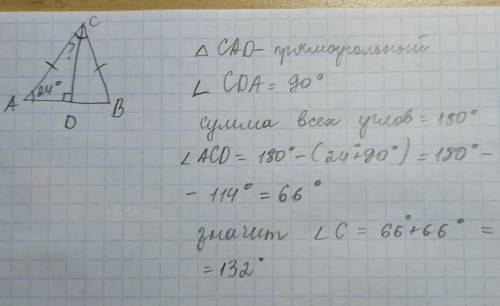 C
?
24°
A
D
B
△ CAD - прямоугольный
∠ CDA = 90°
сумма всех углов = 180°
∠ACD = 180° - (24°+90°) = 180° -
- 114° = 66°
значит ∠C = 66°+66° =
= 132°